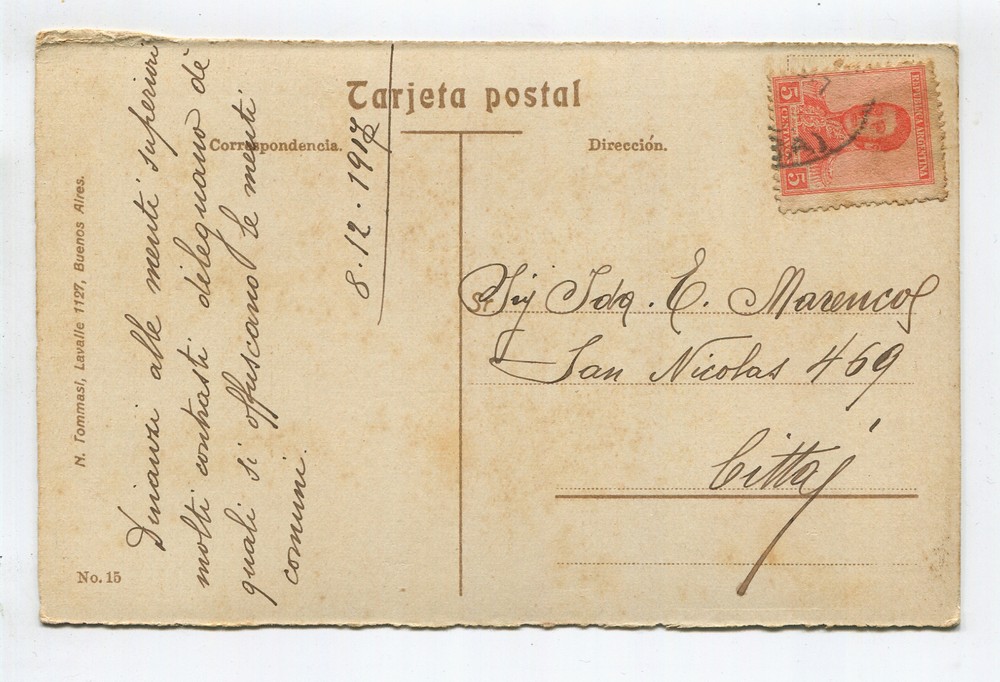 Tarjeta postal
Correspondencia.
Dirección.
N. Tommasi, Lavalle 1127, Buenos Aires.
No. 15
Dinanzi alle menti superiori
molti contrasti dileguano de
quali si offuscano le menti
comuni.
8. 12. 1917
Sig Ida. E. Marenco
San Nicolas 469
Città
REPUBLICA ARGENTINA
5 CENTAVOS 5